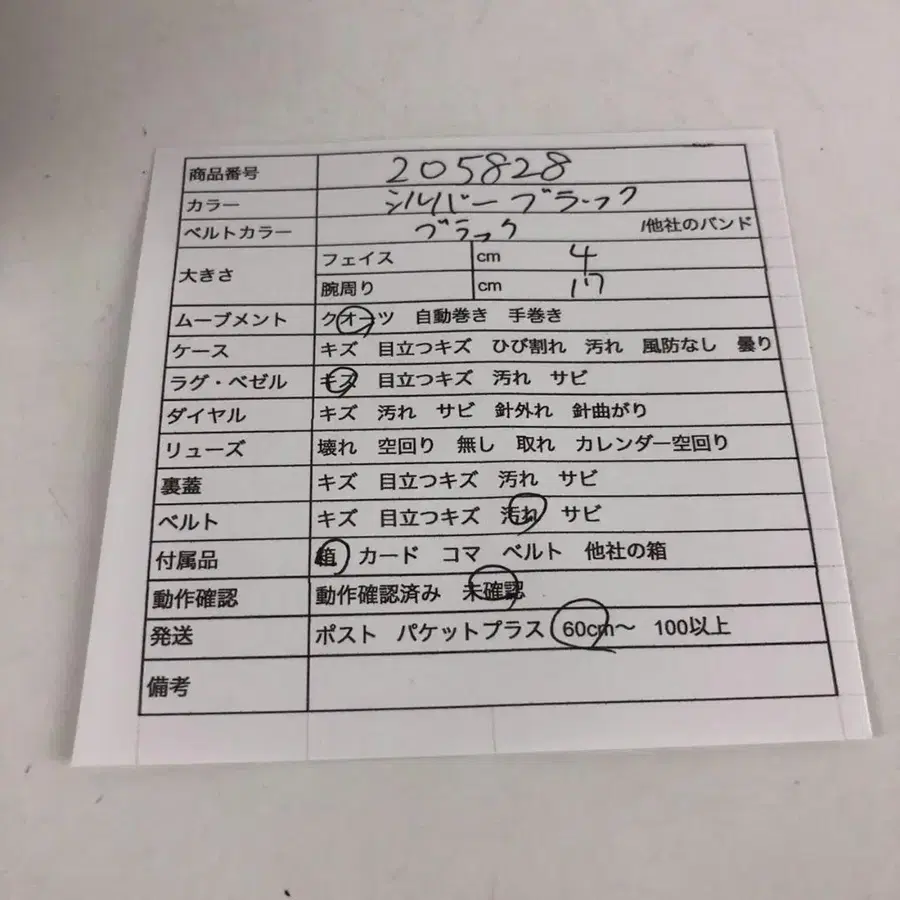 商品番号 205828
カラー シルバーブラック
ベルトカラー ブラック /他社のバンド
大きさ フェイス cm 4
腕周り cm 17
ムーブメント クオーツ 自動巻き 手巻き
ケース キズ 目立つキズ ひび割れ 汚れ 風防なし 曇り
ラグ・ベゼル キズ 目立つキズ 汚れ サビ
ダイヤル キズ 汚れ サビ 針外れ 針曲がり
リューズ 壊れ 空回り 無し 取れ カレンダー空回り
裏蓋 キズ 目立つキズ 汚れ サビ
ベルト キズ 目立つキズ 汚れ サビ
付属品 箱 カード コマ ベルト 他社の箱
動作確認 動作確認済み 未確認
発送 ポスト パケットプラス 60cm〜 100以上
備考